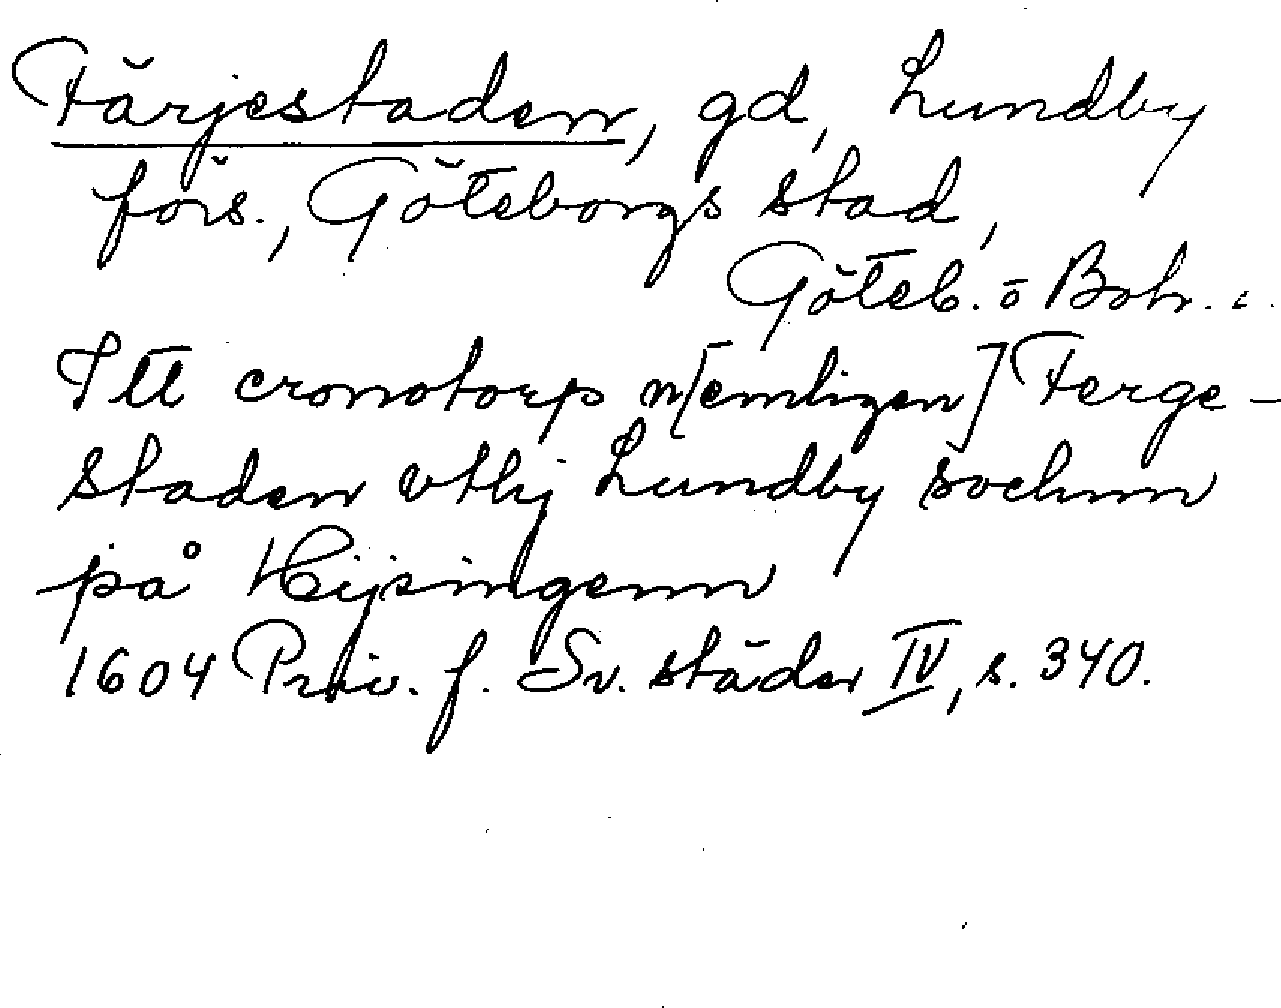 Färjestaden, gd, Lundby
förs., Göteborgs stad,
Göteb. o Boh. l.
Itt cronotorp n[emligen] Ferge-
staden vthj Lundby sochnn
på Hijsingenn
1604 Priv. f. Sv. städer IV, s. 340.